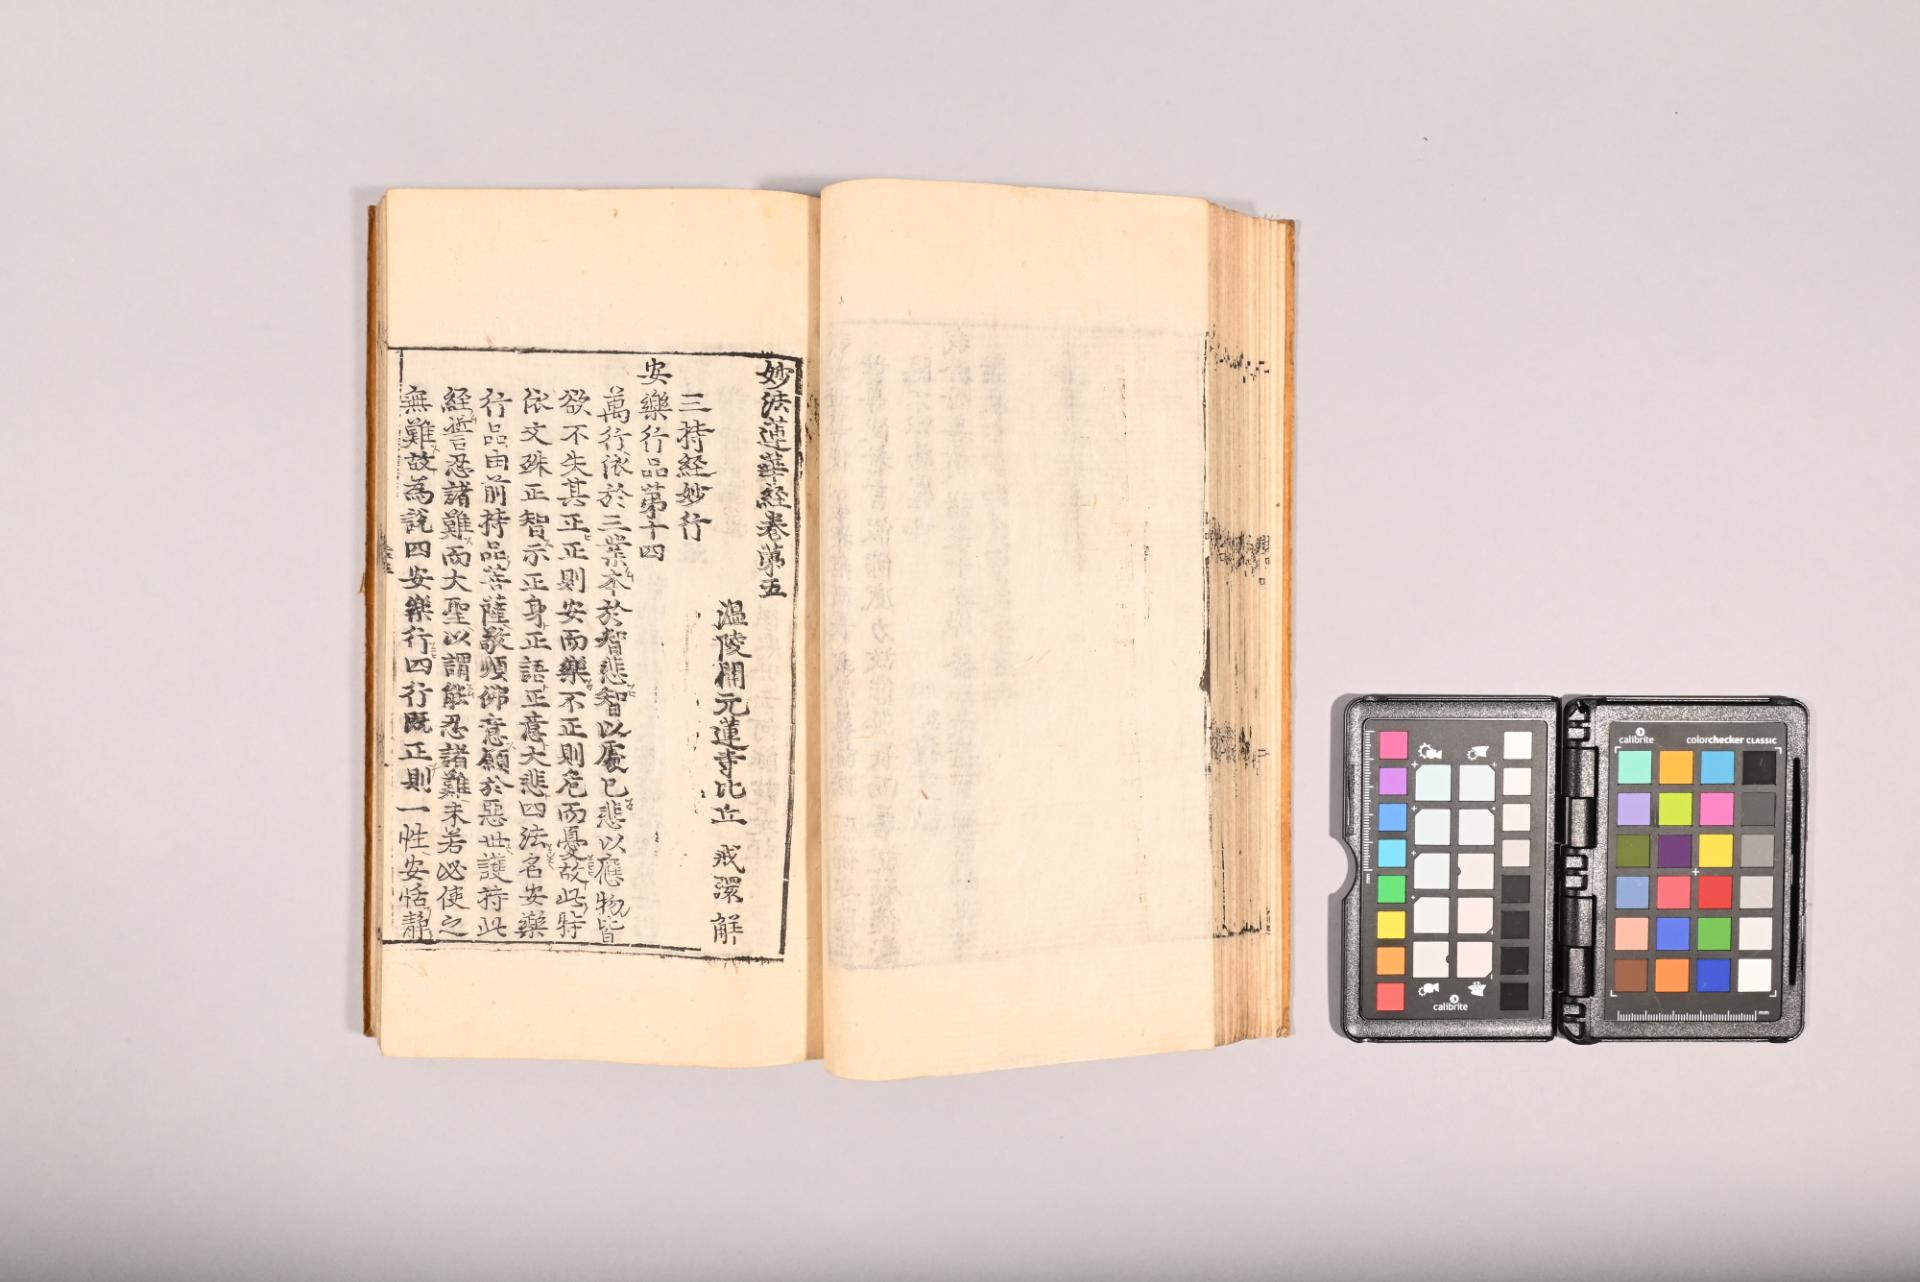 妙法蓮華経卷第五
溫陵開元蓮寺比丘 戒環 解
三持経妙行
安樂行品第十四
萬行依於三業本於智悲智以處已悲以應物皆
欲不失其正正則安而樂不正則危而憂故此特
依文殊正智示正身正語正意大悲四法名安樂
行品由前持品菩薩敬順佛意願於惡世護持此
経誓忍諸難而大聖以謂能忍諸難未若必使之
無難故為說四安樂行四行旣正則一性安恬靜
calibrite
calibrite
colorchecker CLASSIC
mm